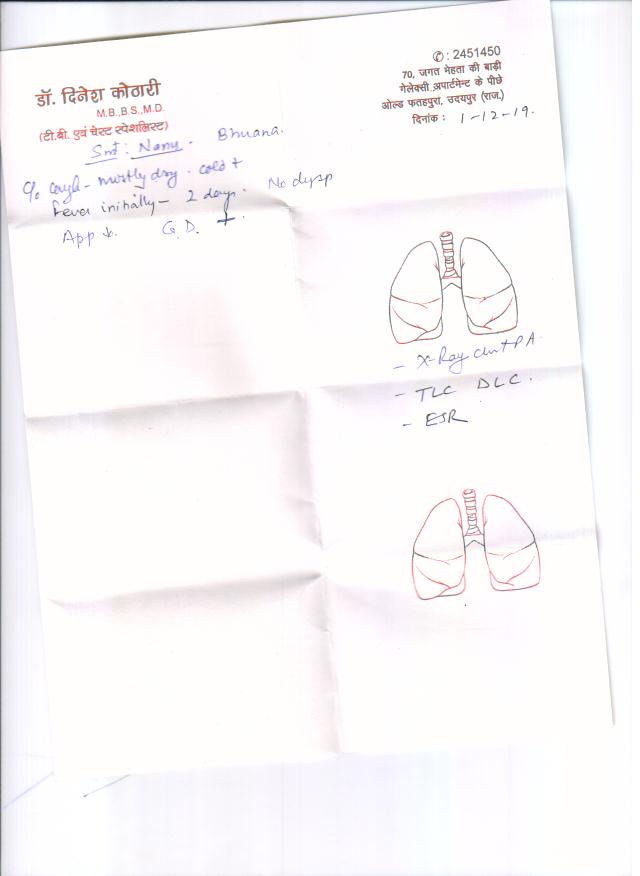 ✆: 2451450
डॉ. दिनेश कोठारी
M.B.,B.S.,M.D.
(टी.बी. एवं चेस्ट स्पेशलिस्ट)
70, जगत मेहता की बाड़ी
गेलेक्सी अपार्टमेन्ट के पीछे
ओल्ड फतहपुरा, उदयपुर (राज.)
दिनांक : 1-12-19.
Smt: Nanu. Bhuana.
c/o cough - mostly dry. cold +
fever initially - 2 days. No dysp
App ↓. G.D. +.
- X-Ray chest PA
- TLC DLC.
- ESR